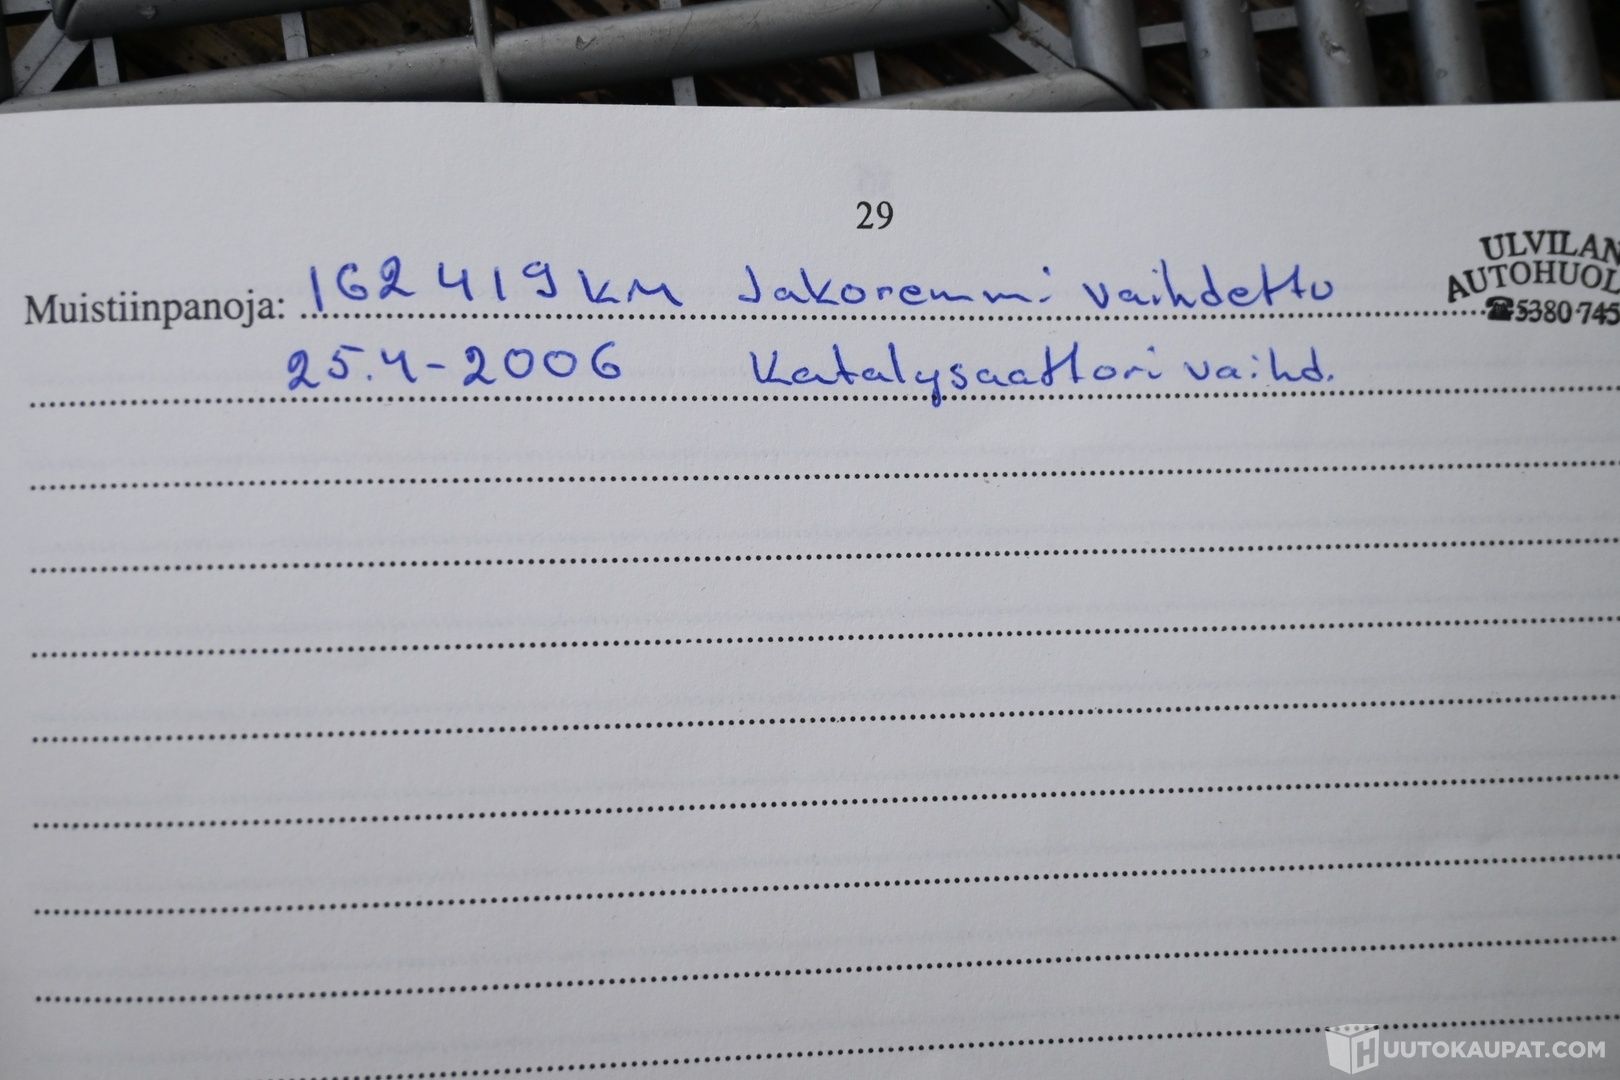 29
ULVILAN
AUTOHUOL
Muistiinpanoja: 162419 km Jakoremmi vaihdettu ☎5380 745
25.4-2006 Katalysaattori vaihd.
HUUTOKAUPAT.COM